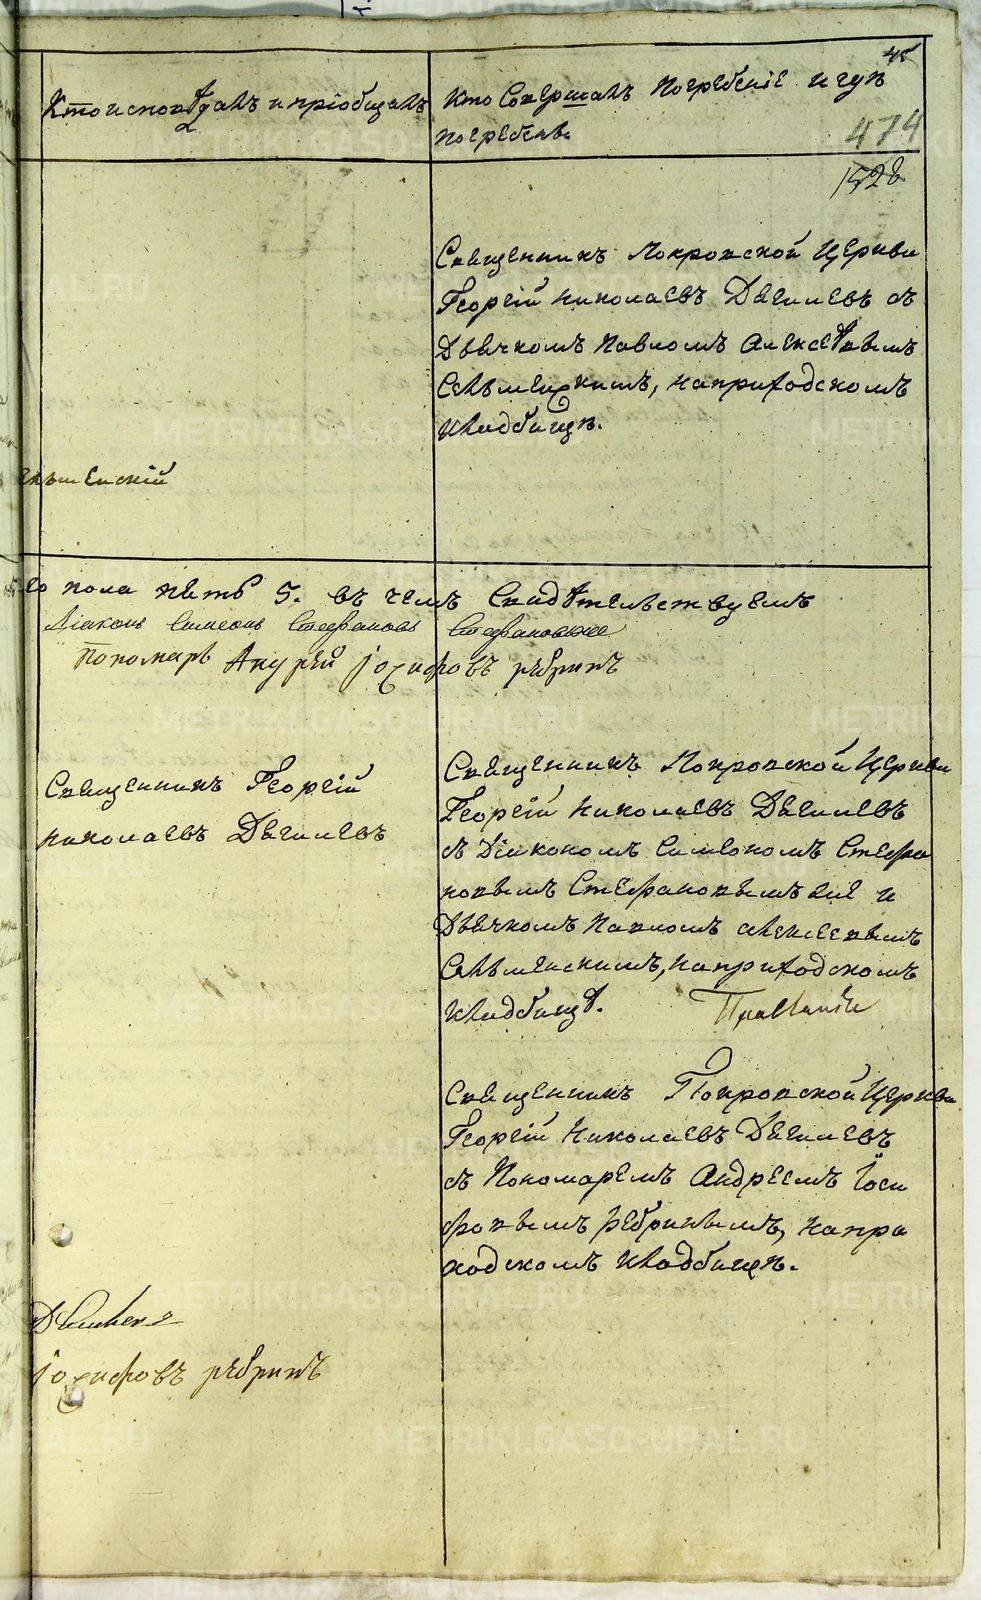 45
Кто исповѣдалъ и пріобщалъ
Кто Совершалъ погребеніе и гдѣ
погребены
474
1528
Священникъ Покровской Церкви
Георгій Николаевъ Дягилевъ съ
Дьячкомъ Павломъ Алексѣевымъ
Сельменскимъ, на приходскомъ
кладбищѣ.
сельменскій
го пола пять 5. въ чемъ Свидѣтельствуемъ
Діаконъ Симеонъ Стефановъ Стефановыхъ
Пономарь Андрей Іосифовъ рѣбринъ
Священникъ Георгій
николаевъ Дягилевъ
Священникъ Покровской Церкви
Георгій Николаевъ Дягилевъ
съ Діакономъ Симеономъ Стефа
новымъ Стефановымъ же и
Дьячкомъ Павломъ Алексеевымъ
Сельменскимъ, на приходскомъ
кладбищѣ.
Священникъ Покровской Церкви
Георгій Николаевъ Дягилевъ
съ Пономаремъ Андреемъ Іоси
фовымъ Рѣбринымъ, на при
ходскомъ кладбищѣ.
Іосифовъ рѣбринъ
METRIKI.GASO-URAL.RU